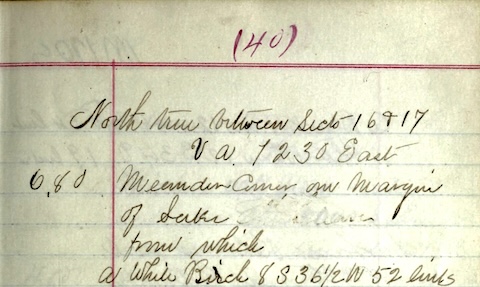 (40)
North true between Secs 16 & 17
Va 7 2 30 East
6,80 Meander Corner on Margin
of Lake
from which
a White Birch 8 S 36 1/2 W 52 links